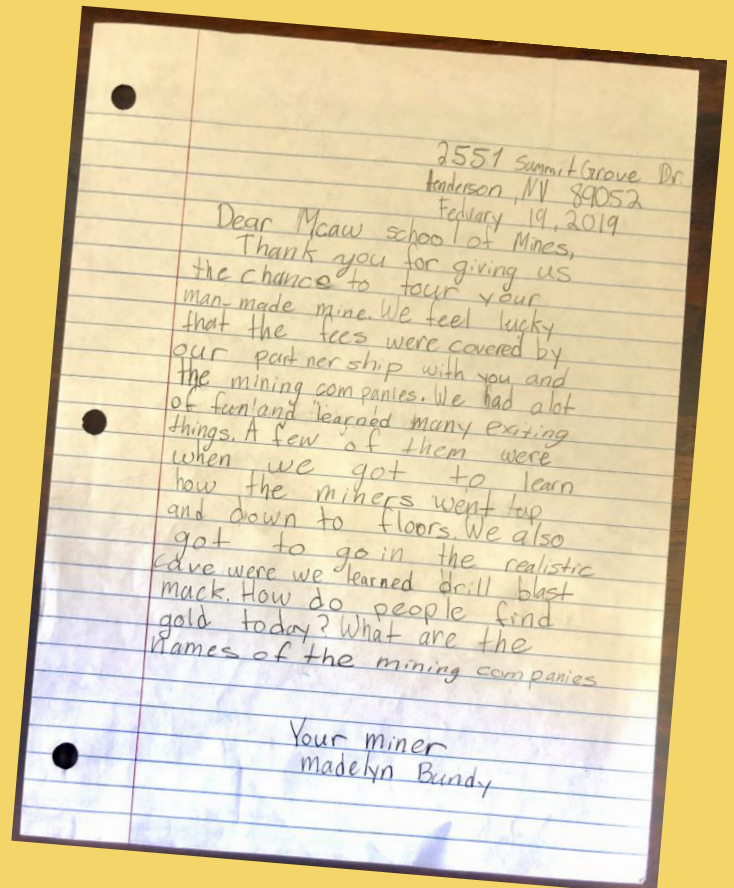 2551 Summit Grove Dr.
Henderson, NV 89052
Feduary 19, 2019
Dear Mcaw school of Mines,
Thank you for giving us
the chance to tour your
man-made mine. We feel lucky
that the fees were covered by
our partnership with you and
the mining companies. We had alot
of fun and learned many exiting
things. A few of them were
when we got to learn
how the miners went up
and down to floors. We also
got to go in the realistic
cave were we learned drill blast
mack. How do people find
gold today? What are the
names of the mining companies
Your miner
madelyn Bundy